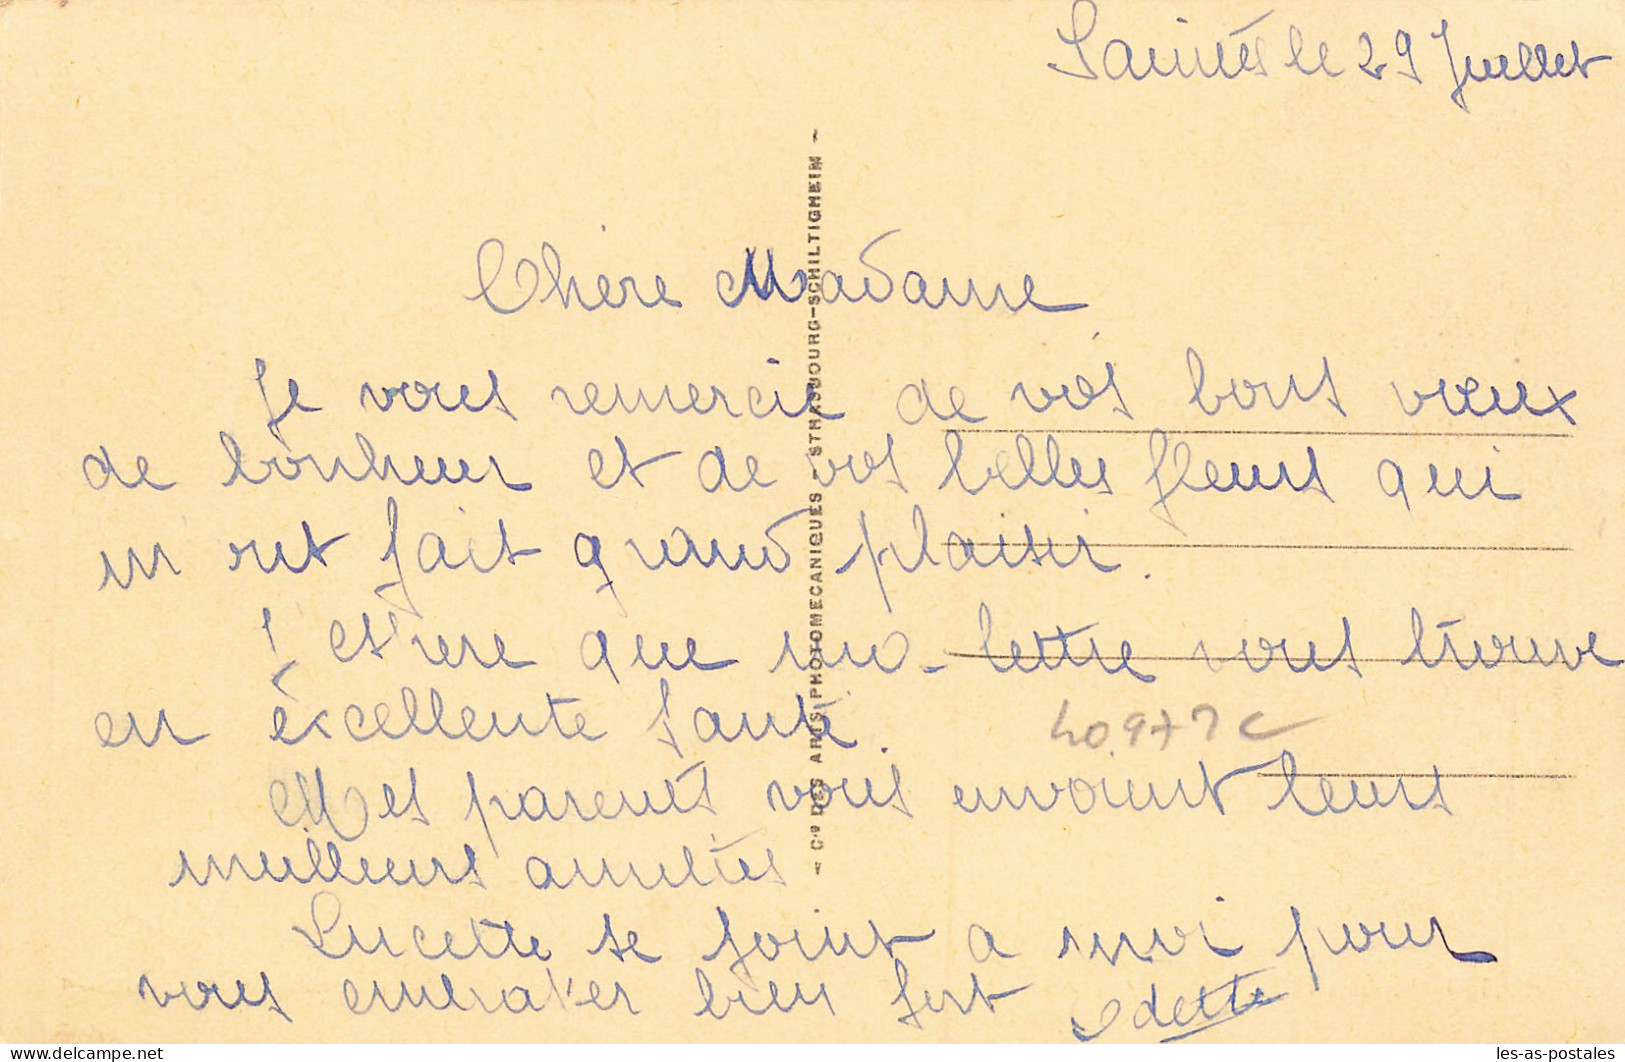 Saintes le 29 Juillet
Chère Madame
Je vous remercie de vos bons vœux
de bonheur et de vos belles fleurs qui
m ont fait grand plaisir.
J espère que ma lettre vous trouve
en excellente santé.
40977C
Mes parents vous envoient leurs
meilleurs amitiés
Lucette se joint a moi pour
vous embrasser bien fort Odette
- Cie DES ARTS PHOTOMECANIQUES - STRASBOURG-SCHILTIGHEIM -
www.delcampe.net
les-as-postales